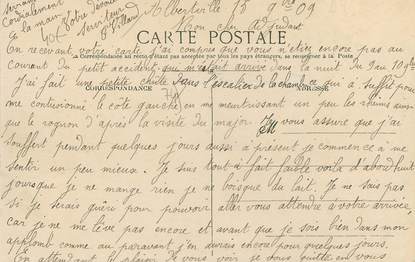 Albertville 15 9bre 09
Mon cher adjudant
serviteur
cordialement
la main
Votre dévoué
serviteur
Villard
CARTE POSTALE
En recevant votre carte j'ai compris que vous n'étiez encore pas au
La Correspondance au recto n'est pas acceptée par tous les pays étrangers, se renseigner à la Poste
courant du petit accident qui m'était arrivé dans la nuit du 9 au 10 9bre
J'ai fait une petite chute dans l'escalier de la chambre qui a suffit pour
CORRESPONDANCE
ADRESSE
me contusionné le côté gauche en me meurtrissant un peu les reins ainsi
que le rognon d'après la visite du major. Je vous assure que j'ai
souffert pendant quelques jours aussi à présent je commence à me
sentir un peu mieux. Je suis tout à fait faible voila d'abord huit
jours que je ne mange rien je ne bois que du lait. Je ne sais pas
si je serais guéri pour pouvoir aller vous attendre à votre arrivée,
car je ne me lève pas encore et avant que je sois bien dans mon
applomb comme au paravant j'en aurais encore pour quelques jours.
En attendant le plaisir de vous voir je vous quitte en vous